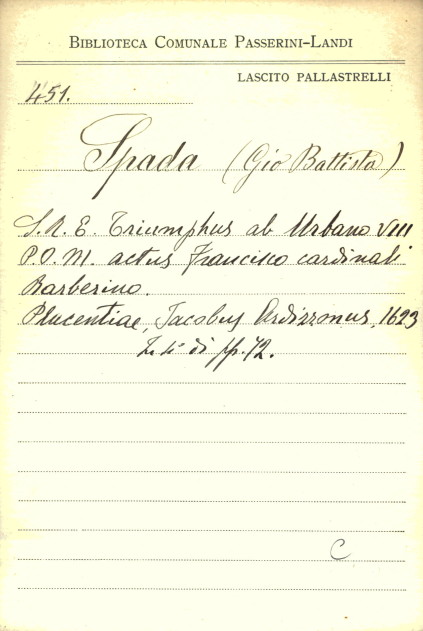 BIBLIOTECA COMUNALE PASSERINI-LANDI
LASCITO PALLASTRELLI
451.
Spada (Gio Battista)
S. R. E. Triumphus ab Urbano VIII
P. O. M. actus Francisco cardinali
Barberino.
Placentiae, Jacobus Ardizzonus, 1623
di pp. 72.
C